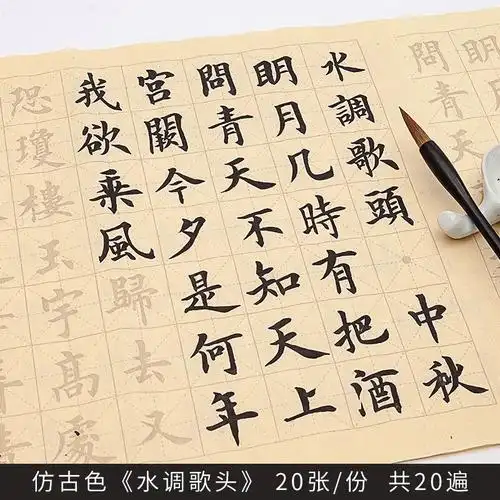 水調歌頭 中秋
明月几時有把酒
問青天不知天上
宮闕今夕是何年
我欲乘風歸去又
恐瓊樓玉宇高處
問青天
仿古色《水调歌头》 20张/份 共20遍